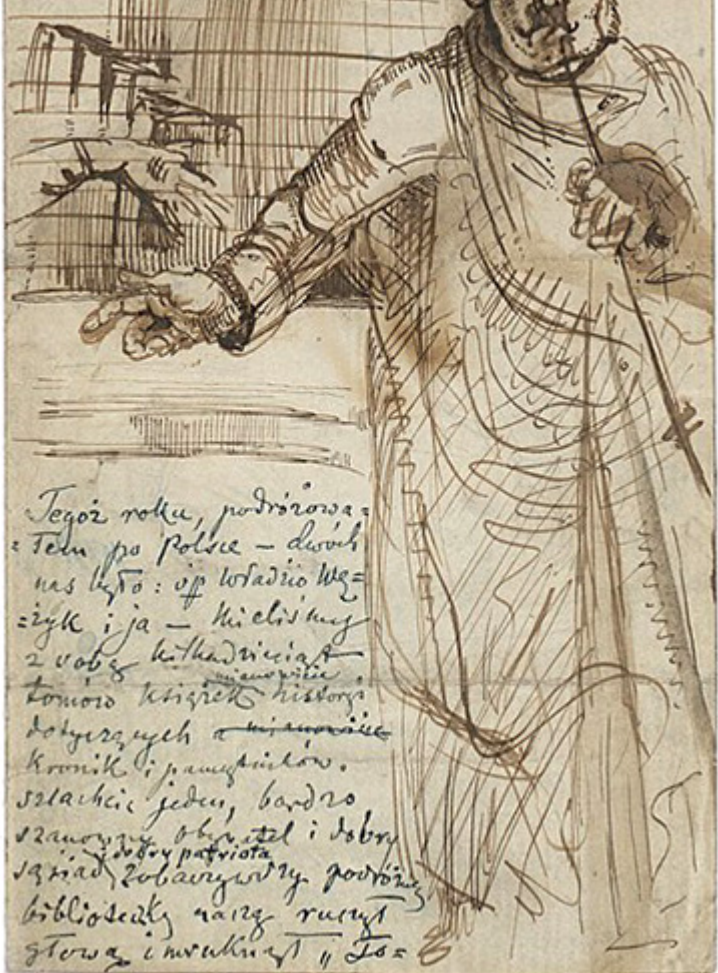 Tegoż roku, podróżowa=
=łem po Polsce – dwóch
nas było: śp Władzio Wę=
=żyk i ja – Mieliśmy
z sobą kilkadziesiąt
mianowicie
tomów książek historji
dotyczących a mianowicie
kronik i pamiętników.
szlachcic jeden, bardzo
szanowny obywatel i dobry
i dobry patriota
sąsiad zobaczywszy podróżną
biblioteczkę naszą ruszył
głową i mruknął „To=